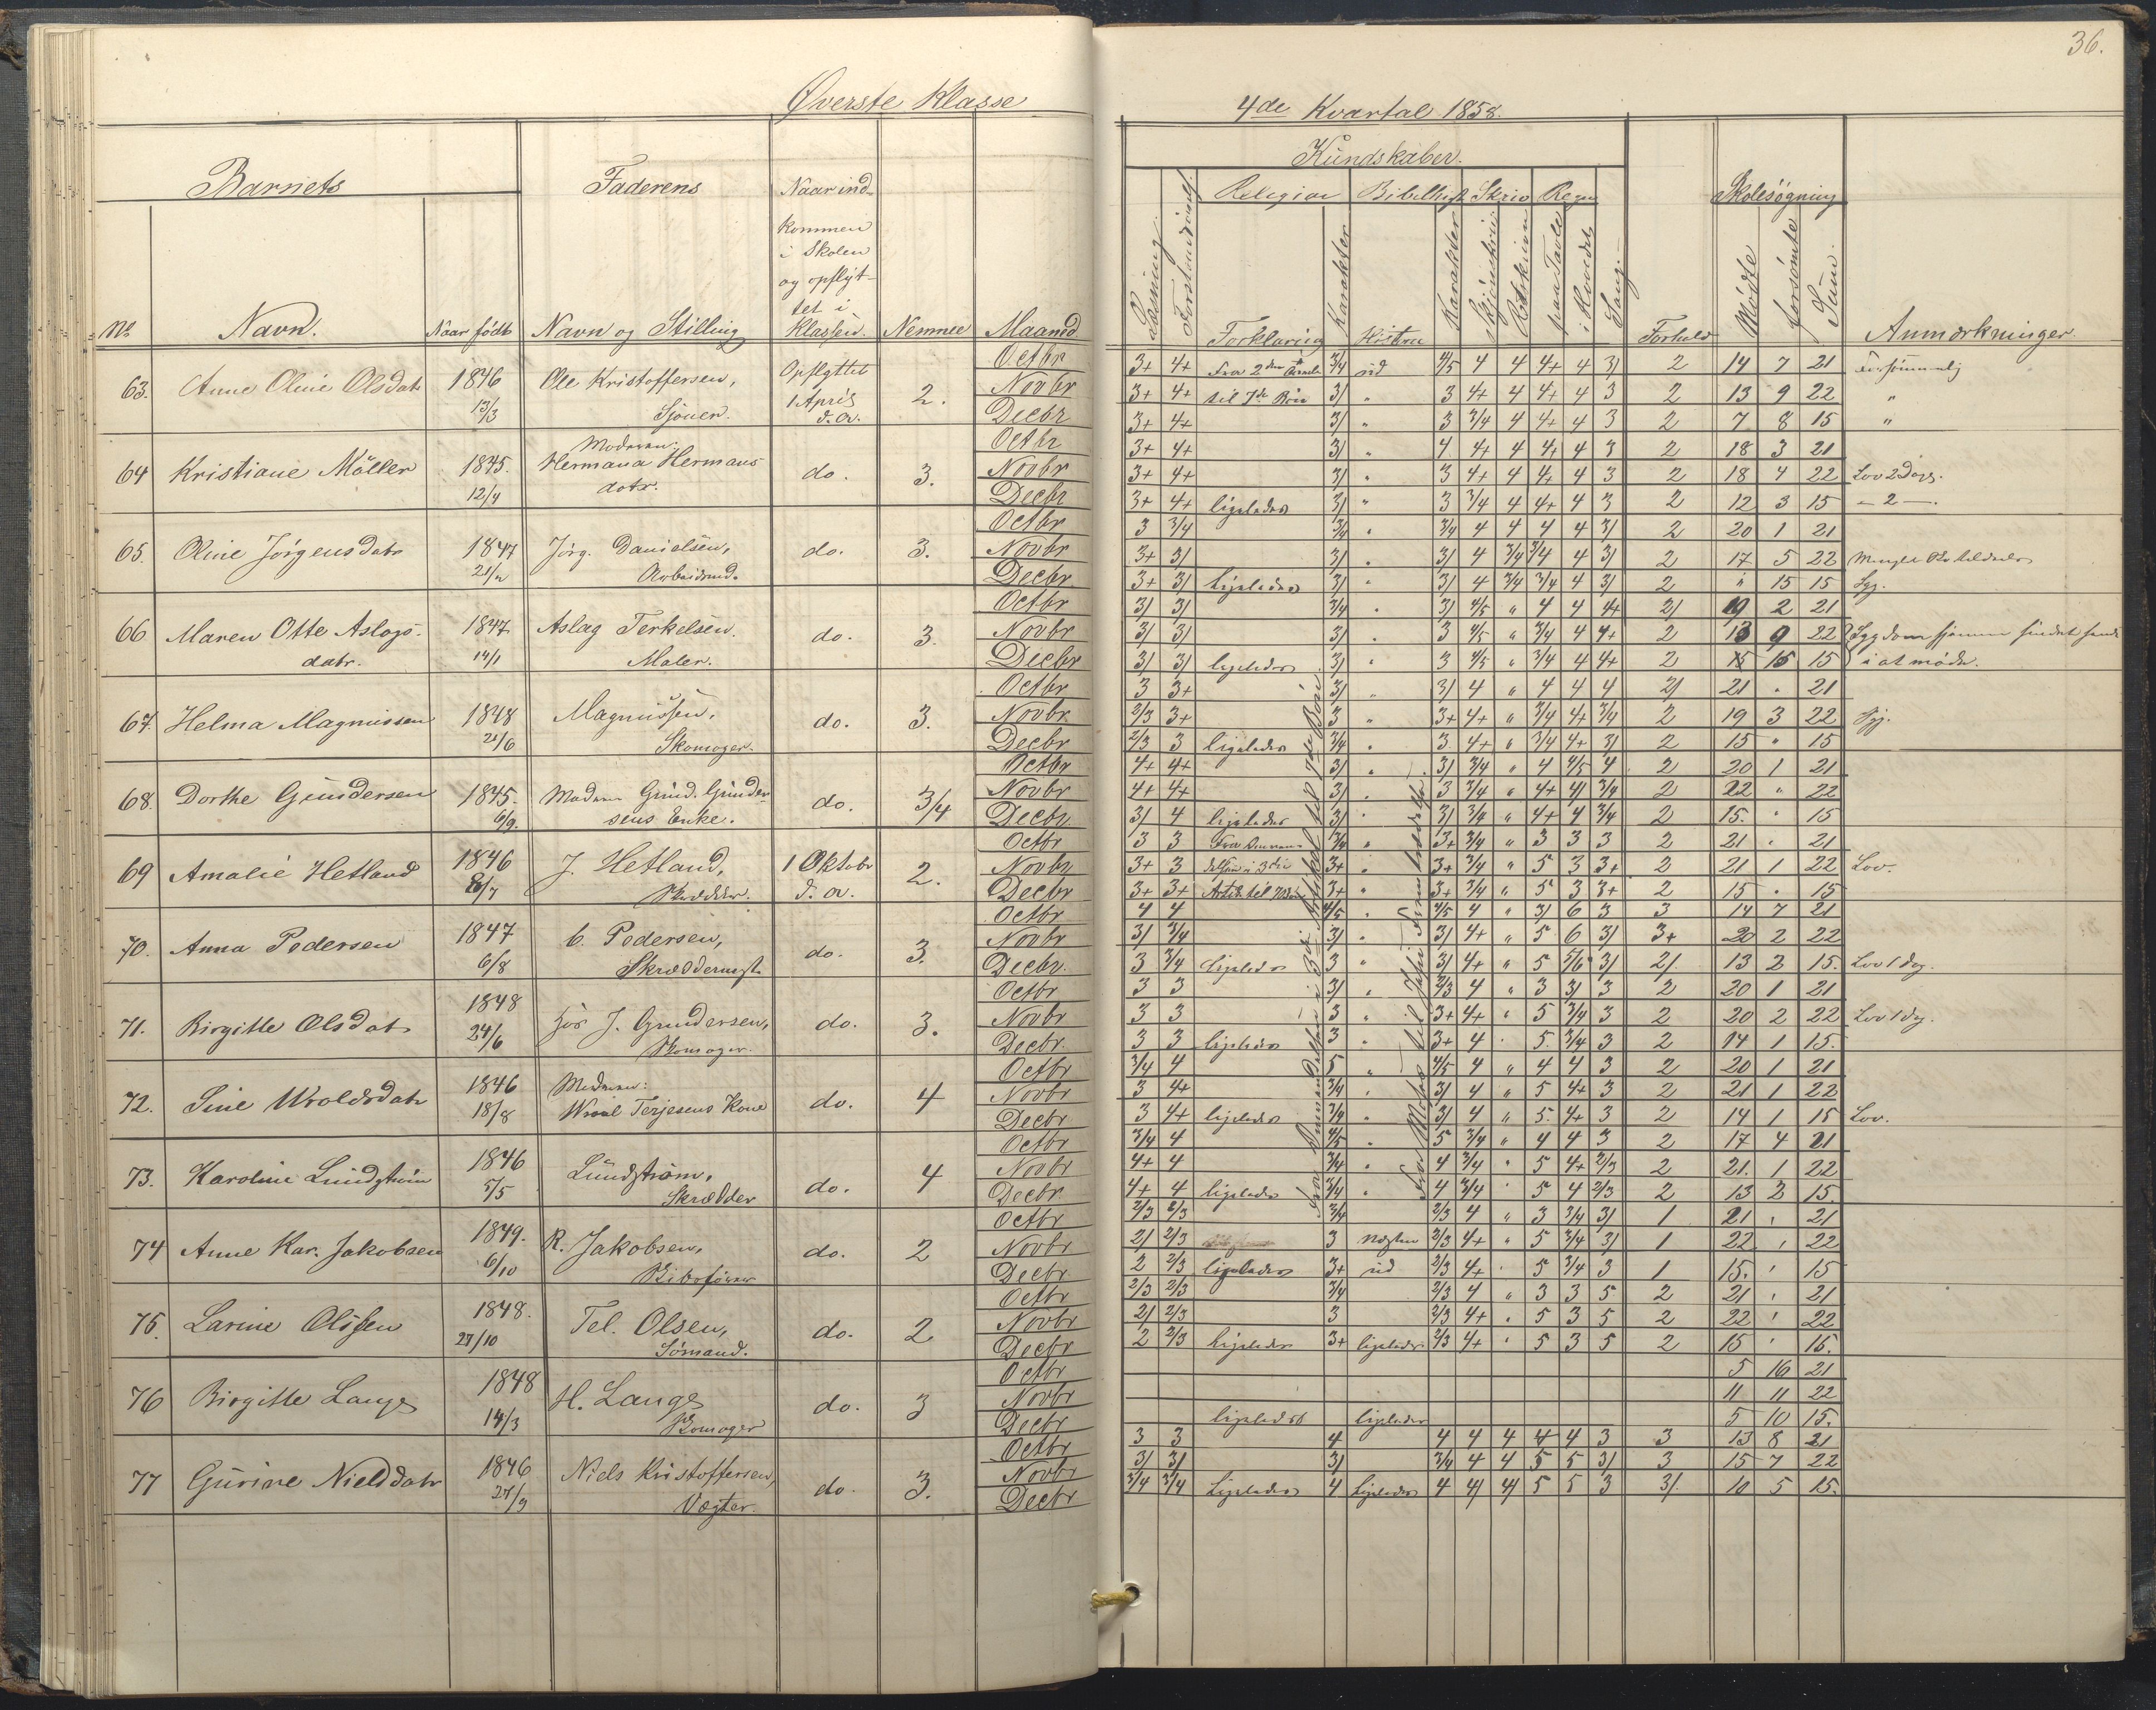 36.
Øverste Klasse
4de Kvartal 1858.
Barnets
Faderens
Naar ind-
kommen
i Skolen
og opflyt-
tet i
Klassen.
No
Navn.
Naar født
Navn og Stilling
Nemme
Maaned
Kundskaber.
Læsning
Forstandighed
Religion
Bibelhist
Skriv
Regn
Forklaring
Karakter
Historie
Karakter
Skjønskriv
Retskriv
paa Tavle
i Hovedet
Sang.
Forhold
Skolesøgning
Mødte
forsømte
Sum.
Anmærkninger.
63. Anne Oline Olsdatr 1846 13/3 Ole Kristoffersen, Sjouer. Opflyttet 1 April d. A. 2.
Octbr 3+ 4+ Fra 2den 3/4 ud 4/5 4 4 4+ 4 3/ 2 14 7 21 Forsømmelig
Novbr 3+ 4+ til 7de Bøn 3/ " 3 4+ 4 4+ 4 3 2 13 9 22 "
Decbr 3+ 4+ 3/ " 3 3/4 4 4+ 4 3 2 7 8 15 "
64 Kristiane Møller 1845. 12/4 Moderen: Hermana Hermans datr. do. 3.
Octbr 3+ 4+ 3/ " 4 4+ 4 4+ 4 3 2 18 3 21
Novbr 3+ 4+ 3/ " 3 4+ 4 4+ 4 3 2 18 4 22 Lov 2 Dage.
Decbr 3+ 4+ ligeledes 3/ " 3 3/4 4 4+ 4 3 2 12 3 15 - 2 -.
65. Oline Jörgensdatr 1847 21/2 Jörg. Danielsen, Arbeidsmd. do. 3.
Octbr 3 3/4 3/4 " 3/4 4 4 4 4 3/ 2 20 1 21
Novbr 3+ 3/ 3/ " 3/ 4 3/4 3/4 4 3/ 2 17 5 22
Decbr 3+ 3/ ligeledes 3/ " 3/ 4 3/4 3/4 4 3/ 2 " 15 15 Syg.
66 Maren Otte Aslags- datr. 1847 14/1 Aslag Terkelsen. Maler. do. 3.
Octbr 3/ 3/ 3/4 " 3/ 4/5 " 4 4 4+ 2/ 19 2 21
Novbr 3/ 3/ 3/ " 3 4/5 " 3/4 4 4+ 2 13 9 22 Sygdom
Decbr 3/ 3/ ligeledes 3/ " 3 4/5 " 3/4 4 4+ 2 15 15 i at møde.
67. Helma Magnussen 1848 21/6 Magnussen, Skomager. do. 3.
Octbr 3 3+ 3/ " 3/ 4 " 4 4 4 2/ 21 " 21
Novbr 2/3 3+ 3 " 3+ 4+ " 3/4 4+ 3/4 2 19 3 22 Syg.
Decbr 2/3 3 ligeledes 3/4 " 3 4+ " 3/4 4+ 3/ 2 15 " 15
68. Dorthe Gundersen 1845. 6/9. Madam Gund. Gunder- sens Enke. do. 3/4
Octbr 4+ 4+ 3/ " 3/ 3/4 " 4 4/5 4 2 20 1 21
Novbr 4+ 4+ 3/ " 3 3/4 " 4+ 4/ 3/4 2 22 " 22
Decbr 3/ 4 ligeledes 3/ " 3/ 3/4 " 4+ 4 3/4 2 15. " 15
69 Amalie Hetland 1846 8/7 J. Hetland, Skrædder. 1 Oktobr d. A. 2.
Octbr 3 3 3/4 " 3+ 3/4 " 3 3 3 2 21 " 21
Novbr 3+ 3 3+ " 3+ 3/4 " 5 3 3+ 2 21 1 22 Lov.
Decbr 3+ 3+ 3+ " 3+ 3/4 " 5 3 3+ 2 15 " 15
70. Anna Pedersen 1847 6/8 C. Pedersen, Skræddermgt. do. 3.
Octbr 4 4 4/5 " 4/5 4 " 3/ 6 3 3 14 7 21
Novbr 3/ 3/4 3/ " 3/ 4+ " 5 6 3/ 3+ 20 2 22
Decbr. 3 3/4 ligeledes 3 " 3/ 4+ " 5 5/6 3/ 2/ 13 2 15. Lov 1 dag.
71. Birgitte Olsdatr 1848 24/6 hos J. Gundersen, Skomager. do. 3.
Octbr 3 3 3/ " 2/3 4 " 3 3/ 3 2 20 1 21
Novbr 3 3 3 " 3+ 4+ " 5 3/4 3 2 20 2 22 Lov 1 dag.
Decbr. 3 3 ligeledes 3 " 3+ 4 " 5. 3/4 3 2 14 1 15.
72. Sine Wroldsdatr 1846 18/8 Moderen: Wroal Terjesens Kone do. 4
Octbr 3/4 4 5 " 4/5 4 " 4 4 3 2 20 1 21
Novbr 3 4+ 3/4 " 3/ 4 " 5 4+ 3 2 21 1 22
Decbr 3 4+ ligeledes 3/4 " 3/ 4 " 5. 4+ 3 2 14 1 15 Lov.
73. Karoline Lundstrøm 1846 5/5 Lundstrøm, Skrædder do. 4
Octbr 3/4 4 4/5 " 5 3/4 " 4 4 3 2 17 4 21
Novbr 4+ 4 3/4 " 4 3/4 " 5 4+ 2/3 2 21. 1 22
Decbr 4+ 4 ligeledes 3/4 " 4 3/4 " 5 4 2/3 2 13 2 15.
74 Anne Kar. Jakobsen 1849. 6/10 R. Jakobsen, do. 2
Octbr 2/3 2/3 3/4 2/3 4 " 3 3/4 3/ 1 21 " 21
Novbr 2/ 2/3 3 Næsten 2/3 4+ " 5 3/4 3/ 1 22 " 22
Decbr 2 2/3 ligeledes 3+ ud 2/3 4+ " 5 3/4 3 1 15. " 15
75. Larine Olssen 1848. 27/10 Tel. Olsen, Sömand. do. 2
Octbr 2/3 2/3 3/4 2/3 4 " 3 3 5 2 21 " 21
Novbr 2/ 2/3 3 2/3 4+ " 5 3 5 2 22 " 22
Decbr 2 2/3 ligeledes 3+ ligeledes 2/3 4+ " 5 3 5 2 15 " 15.
76 Birgitte Lange 1848 14/3 H. Lange Skomager do. 3
Octbr 5 16 21
Novbr 11 11 22
Decbr ligeledes ligeledes 5 10 15.
77 Gurine Nielsdatr 1846 27/9 Niels Kristoffersen, Vægter. do. 3.
Octbr 3 3 4 4 4 4 4 4 3 3 13 8 21
Novbr 3/ 3/ 3/ 3/4 4 4 5 5 3/ 3 15 7 22
Decbr 3/4 3/4 Ligeledes 4 Ligeledes 4 4/ 4/ 5 5 3 3/. 10 5 15.